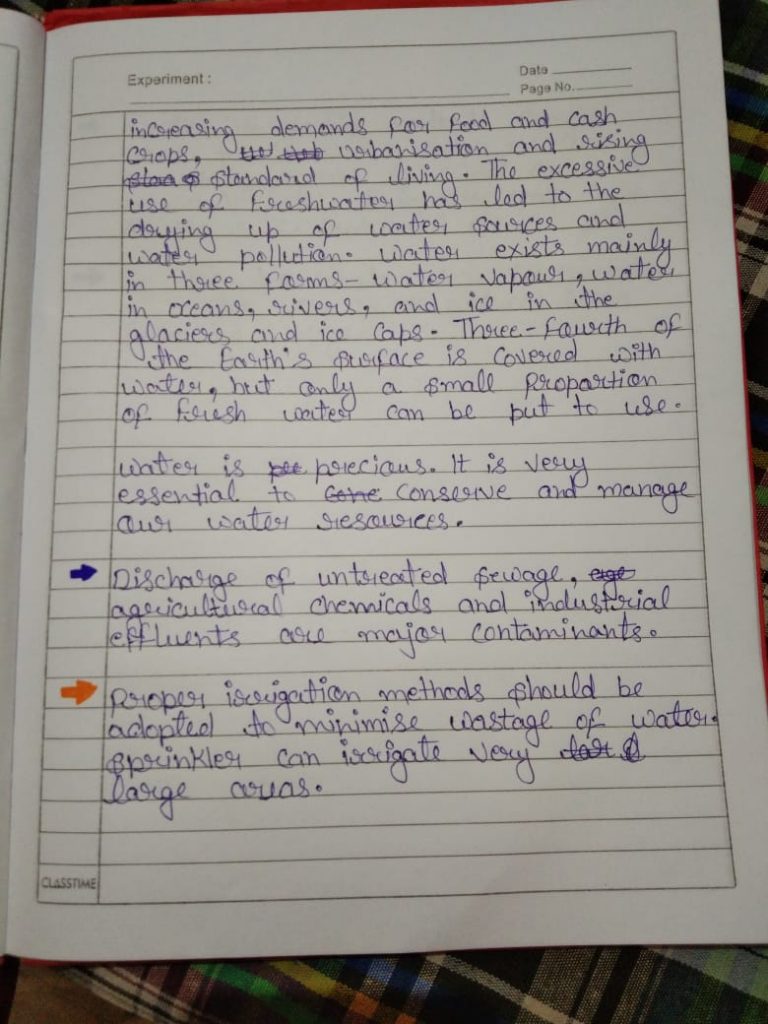 Experiment :
Date
Page No.
increasing demands for food and cash
crops, urbanisation and rising
standard of living. The excessive
use of freshwater has led to the
drying up of water sources and
water pollution. Water exists mainly
in three forms- water vapour, water
in oceans, rivers, and ice in the
glaciers and ice caps. Three-fourth of
the Earth's surface is covered with
water, but only a small proportion
of fresh water can be put to use.
water is precious. It is very
essential to conserve and manage
our water resources.
Discharge of untreated sewage,
agricultural chemicals and industrial
effluents are major contaminants.
Proper irrigation methods should be
adopted to minimise wastage of water.
Sprinkler can irrigate very
large areas.
CLASSTIME